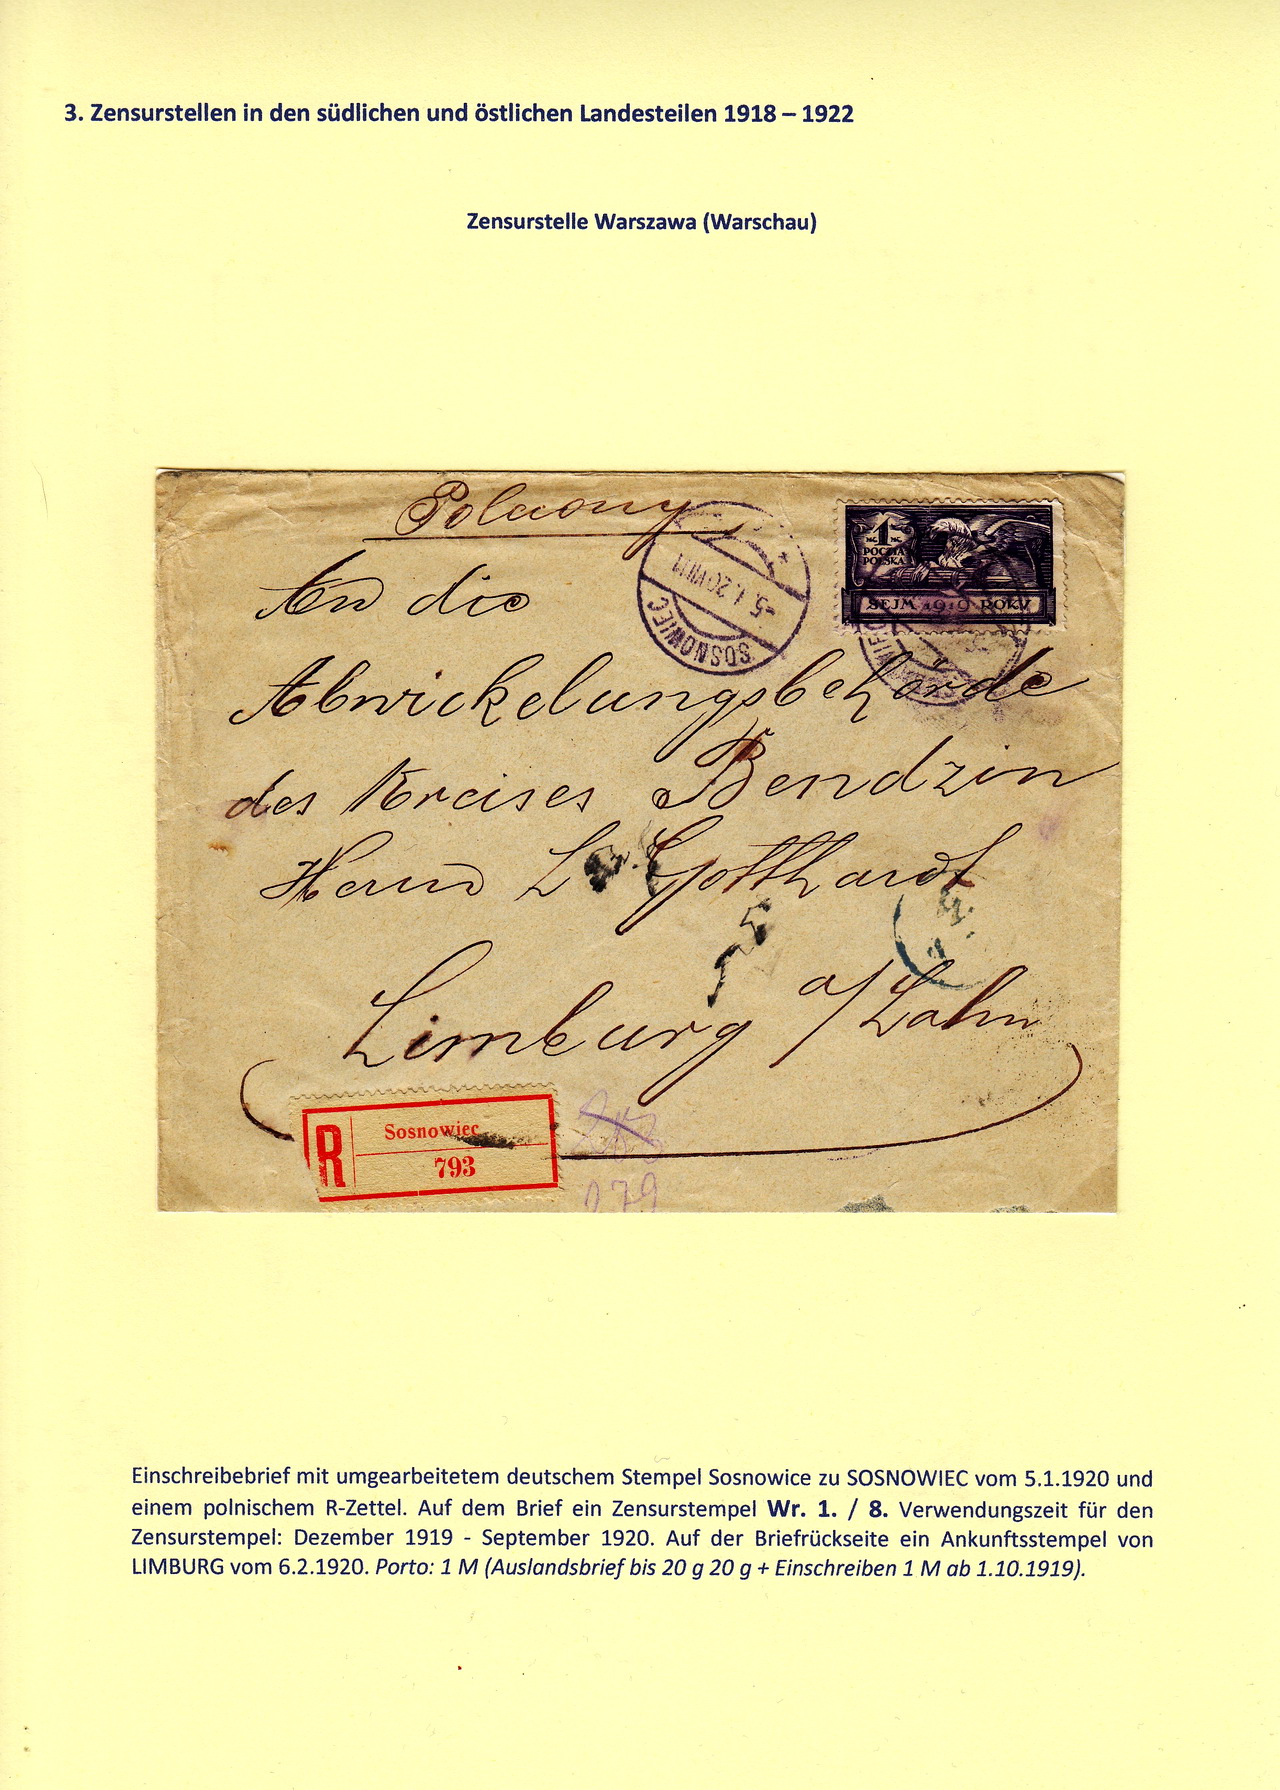 3. Zensurstellen in den südlichen und östlichen Landesteilen 1918 – 1922
Zensurstelle Warszawa (Warschau)
Polecony
1
POCZTA
POLSKA
SEJM 1919 ROKU
-5.1.20
SOSNOWIEC
An die
Abwickelungsbehörde
des Kreises Bendzin
Herrn L. Gotthardt
Limburg a/Lahn
R
Sosnowiec
793
279
Einschreibebrief mit umgearbeitetem deutschem Stempel Sosnowice zu SOSNOWIEC vom 5.1.1920 und
einem polnischem R-Zettel. Auf dem Brief ein Zensurstempel Wr. 1. / 8. Verwendungszeit für den
Zensurstempel: Dezember 1919 - September 1920. Auf der Briefrückseite ein Ankunftsstempel von
LIMBURG vom 6.2.1920. Porto: 1 M (Auslandsbrief bis 20 g 20 g + Einschreiben 1 M ab 1.10.1919).